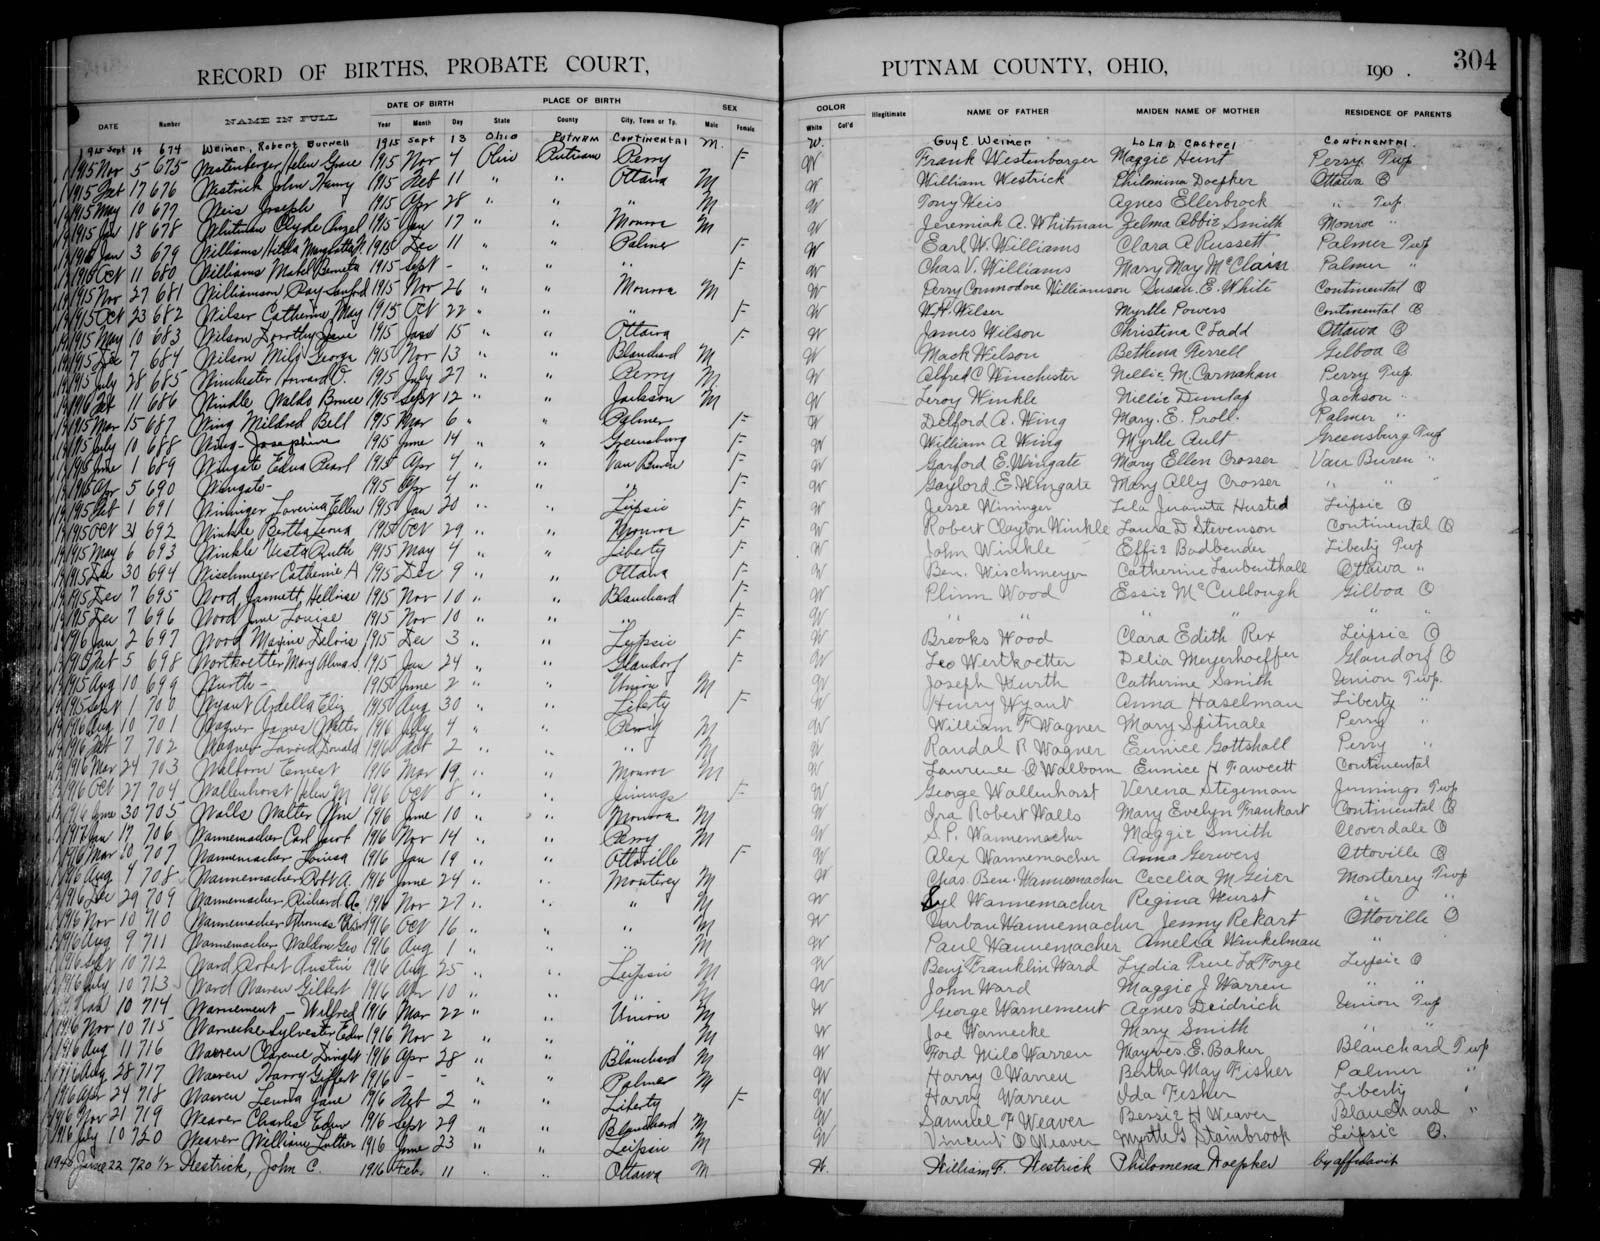 RECORD OF BIRTHS, PROBATE COURT, PUTNAM COUNTY, OHIO, 190 . 304
DATE OF BIRTH PLACE OF BIRTH SEX COLOR
DATE Number NAME IN FULL Year Month Day State County City, Town or Tp. Male Female White Col'd Illegitimate NAME OF FATHER MAIDEN NAME OF MOTHER RESIDENCE OF PARENTS
1915 Sept 14 674 Weimer, Robert Burnell 1915 Sept 13 Ohio Putnam Continental M. W. Guy E. Weimer Lola D. Casteel Continental
1915 Nov 5 675 Westenbarger Helen Grace 1915 Nov 4 Ohio Putnam Perry F W Frank Westenbarger Maggie Hunt Perry Twp
1915 Feb 17 676 Westrick John Henry 1915 Feb 11 " " Ottawa M W William Westrick Philomina Doepker Ottawa O
1915 May 10 677 Weis Joseph 1915 Apr 28 " " " M W Tony Weis Agnes Ellerbrock " Twp
1915 Jan 18 678 Whitman Clyde Anzel 1915 Jan 17 " " Monroe M W Jeremiah A. Whitman Zelma Abbie Smith Monroe "
1916 Jan 3 679 Williams Hilda 1915 Dec 11 " " Palmer F W Earl W. Williams Clara A Russett Palmer Twp
1916 Oct 11 680 Williams Mabel Berneta 1915 Sept - " " " F W Chas. V. Williams Mary May McClain Palmer "
1915 Nov 27 681 Williamson Ray Sanford 1915 Nov 26 " " Monroe M W Perry Commodore Williamson Susan. E. White Continental O
1915 Oct 23 682 Wilser Catherine May 1915 Oct 22 " " " F W W. H. Wilser Myrtle Powers Continental O
1915 May 10 683 Wilson Dorothy Jane 1915 Jan 15 " " Ottawa F W James Wilson Christina C Ladd Ottawa O
1915 Dec 7 684 Wilson Milo George 1915 Nov 13 " " Blanchard M W Mack Wilson Bethena Terrell Gilboa O
1915 July 28 685 Winchester Howard O. 1915 July 27 " " Perry M W Alfred C Winchester Nellie M. Carnahan Perry Twp
1916 Feb 11 686 Winkle Waldo Bruce 1915 Sept 12 " " Jackson M W Leroy Winkle Nillie Dunlap Jackson "
1915 Mar 15 687 Wing Mildred Bell 1915 Mar 6 " " Palmer F W Delford A. Wing Mary. E. Proll. Palmer "
1915 July 10 688 Wing - Josephine 1915 June 14 " " Greensburg F W William A Wing Myrtle Ault Greensburg Twp
1915 June 1 689 Wingate Edna Pearl 1915 Apr 4 " " Van Buren F W Garford E. Wingate Mary Ellen Crosser Van Buren "
1915 Apr 5 690 Wingate - 1915 Apr 4 " " " F W Gaylord. E. Wingate Mary Ally Crosser " " "
1915 Feb 1 691 Wininger Laverina Ellen 1915 Jan 20 " " Leipsic F W Jesse Wininger Lela Juanita Husted Leipsic O
1915 Oct 31 692 Winkle Bertha Leona 1915 Oct 29 " " Monroe F W Robert Clayton Winkle Laura D Stevenson Continental O
1915 May 6 693 Winkle Vesta Ruth 1915 May 4 " " Liberty F W John Winkle Effie Badbender Liberty Twp
1915 Dec 30 694 Wischmeyer Catherine A 1915 Dec 9 " " Ottawa F W Ben. Wischmeyer Catherine Laubenthall Ottawa "
1915 Dec 7 695 Wood Jannett Helloise 1915 Nov 10 " " Blanchard F W Plinn Wood Essie McCullough Gilboa O
1915 Dec 7 696 Wood June Louise 1915 Nov 10 " " " F W " " " " " "
1916 Jan 2 697 Wood Maxine Deloris 1915 Dec 3 " " Leipsic F W Brooks Wood Clara Edith Rex Leipsic O
1915 Feb 5 698 Wortkoetter Mary Alma 1915 Jan 24 " " Glandorf F W Leo Wertkoetter Delia Meyerhoeffer Glandorf O
1915 Aug 10 699 Wurth - 1915 June 2 " " Union M W Joseph Wurth Catherine Smith Union Twp.
1915 Sept 1 700 Wyant Ardella Eliz 1915 Aug 30 " " Liberty F W Henry Wyant Anna Haselman Liberty "
1916 Aug 10 701 Wagner James Walter 1916 July 4 " " Perry M W William F Wagner Mary Spitnale Perry "
1916 Feb 7 702 Wagner Donald 1916 Feb 2 " " " M W Randal R Wagner Eunice Gottshall Perry "
1916 Mar 24 703 Walborn Ernest 1916 Mar 19 " " Monroe M W Lawrence O Walborn Eunice H Fawcett Continental
1916 Oct 27 704 Wallenhorst Helen M 1916 Oct 8 " " Jennings F W George Wallenhorst Verena Stegeman Jennings Twp
1916 June 30 705 Walls Walter Wm 1916 June 10 " " Monroe M W Ira Robert Walls Mary Evelyn Frankart Continental O
1917 Jan 17 706 Wannemacher Carl Jacob 1916 Nov 14 " " Perry M W S. P. Wannemacher Maggie Smith Cloverdale O
1916 Mar 20 707 Wannemacher Louisa 1916 Jan 19 " " Ottoville F W Alex Wannemacher Anna Gerwers Ottoville O
1916 Aug 4 708 Wannemacher Robt A. 1916 June 24 " " Monterey M W Chas. Ben. Wannemacher Cecelia M Geier Monterey Twp
1916 Dec 29 709 Wannemacher Richard 1916 Nov 27 " " " M W Syl Wannemacher Regina Wurst " "
1916 Nov 10 710 Wannemacher Thomas 1916 Oct 16 " " " M W Durban Wannemacher Jenny Rekart Ottoville O
1916 Aug 9 711 Wannemacher Waldon Geo 1916 Aug 1 " " " M W Paul Wannemacher Amelia Winkelman " "
1916 Sept 10 712 Ward Robert Austin 1916 Aug 25 " " Leipsic M W Benj Franklin Ward Lydia True LaForge Leipsic O
1916 July 10 713 Ward Warren Gilbert 1916 Apr 10 " " " M W John Ward Maggie J Warren " "
10 714 Warnement - Wilfred 1916 Mar 22 " " Union M W George Warnement Agnes Deidrich Union Twp
1916 Nov 10 715 Warnecke Sylvester Eden 1916 Nov 2 " " " M W Joe Warnecke Mary Smith " "
1916 Aug 11 716 Warren Clarence Dwight 1916 Apr 28 " " Blanchard M W Ford Milo Warren Mayves. E. Baker Blanchard Twp
1916 Aug 28 717 Warren Harry Gilbert 1916 - - " " Palmer M W Harry C Warren Bertha May Fisher Palmer "
1916 Apr 24 718 Warren Leuna Jane 1916 Feb 2 " " Liberty F W Harry Warren Ida Fisher Liberty "
1916 Nov 21 719 Weaver Charles Eden 1916 Sept 29 " " Blanchard M W Samuel F Weaver Bessie H Weaver Blanchard "
1916 July 10 720 Weaver William Luther 1916 June 23 " " Leipsic M W Vincent O Weaver Myrtle G Stainbrook Leipsic O.
June 22 720 1/2 Westrick, John C. 1916 Feb. 11 " " Ottawa M W. William F. Westrick Philomena Doepker by affidavit